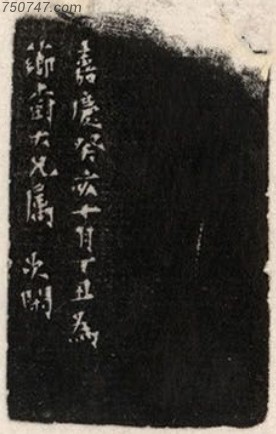 750747.com
嘉慶癸亥十月丁丑為
節尉大兄属 次閑